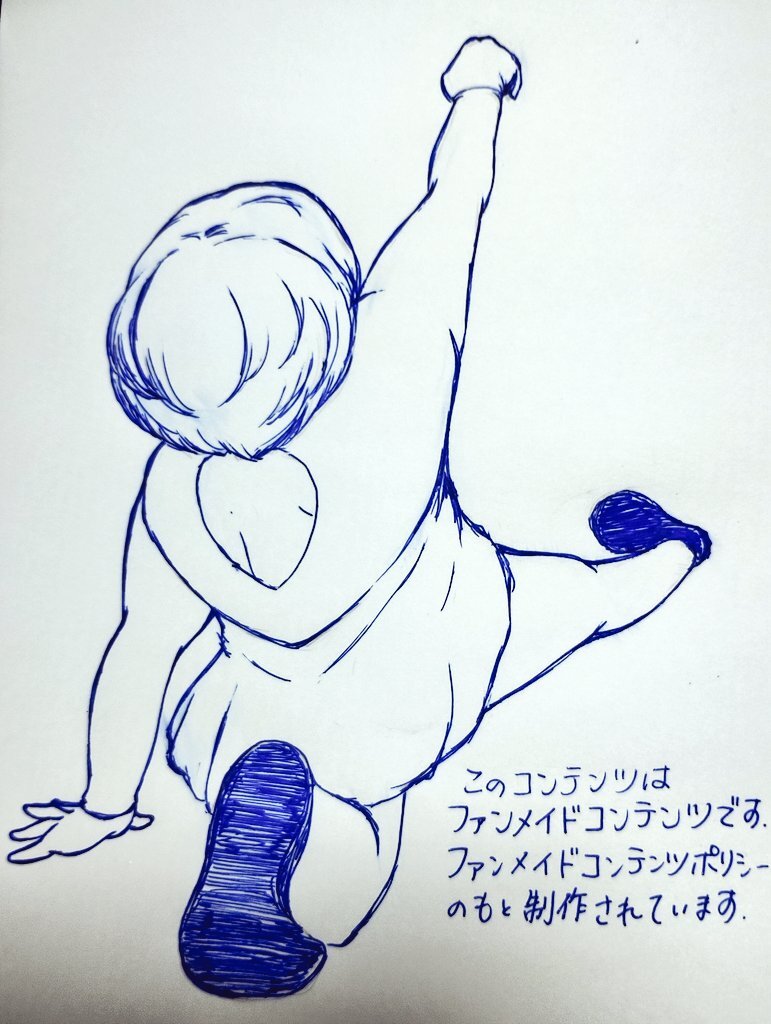 このコンテンツは
ファンメイドコンテンツです.
ファンメイドコンテンツポリシー
のもと制作されています.